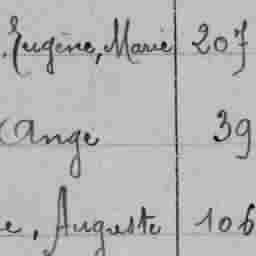 Eugène, Marie 207
Ange 39
e, Auguste 106